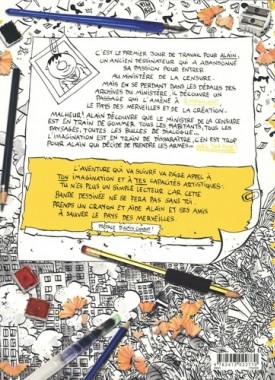 C'EST LE PREMIER JOUR DE TRAVAIL POUR ALAIN,
UN ANCIEN DESSINATEUR QUI A ABANDONNÉ
SA PASSION POUR ENTRER
AU MINISTÈRE DE LA CENSURE.
MAIS EN SE PERDANT DANS LES DÉDALES DES
ARCHIVES DU MINISTÈRE, IL DÉCOUVRE UN
PASSAGE QUI L'AMÈNE À
LE PAYS DES MERVEILLES ET DE LA CRÉATION.
MALHEUR! ALAIN DÉCOUVRE QUE LE MINISTRE DE LA CENSURE
EST EN TRAIN DE GOMMER TOUS LES HABITANTS, TOUS LES
PAYSAGES, TOUTES LES BULLES DE DIALOGUE...
L'IMAGINATION EST EN TRAIN DE DISPARAÎTRE, C'EN EST TROP
POUR ALAIN QUI DÉCIDE DE PRENDRE LES ARMES...
L'AVENTURE QUI VA SUIVRE VA FAIRE APPEL À
TON IMAGINATION ET À TES CAPACITÉS ARTISTIQUES.
TU N'ES PLUS UN SIMPLE LECTEUR CAR CETTE
BANDE DESSINÉE NE SE FERA PAS SANS TOI.
PRENDS UN CRAYON ET AIDE ALAIN ET SES AMIS
À SAUVER LE PAYS DES MERVEILLES.